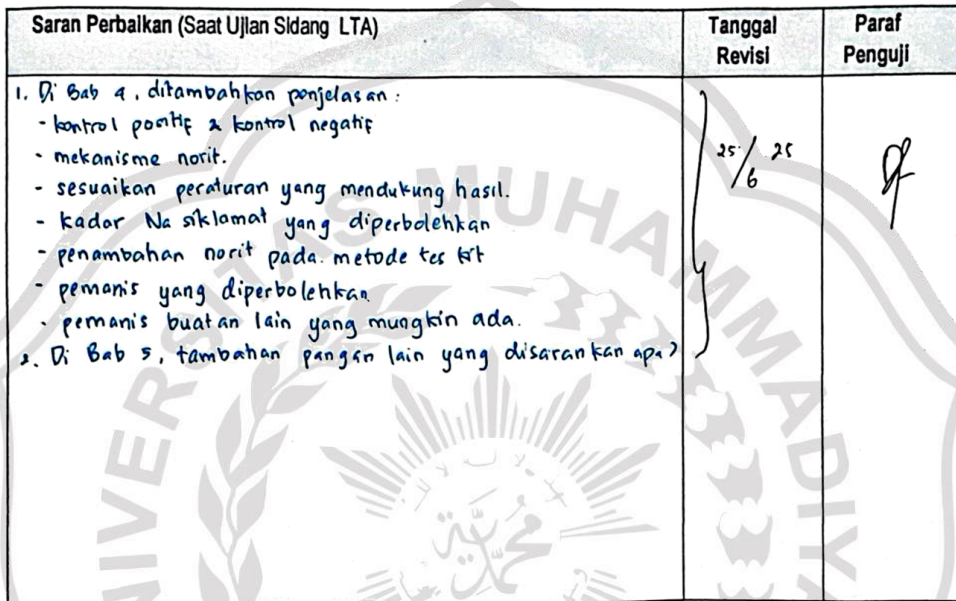 Saran Perbaikan (Saat Ujian Sidang LTA)
Tanggal Revisi
Paraf Penguji
1. Di Bab 4, ditambahkan penjelasan :
- kontrol positif & kontrol negatif
- mekanisme norit.
- sesuaikan peraturan yang mendukung hasil.
- kadar Na siklamat yang diperbolehkan
- penambahan norit pada metode tes kit
- pemanis yang diperbolehkan
- pemanis buatan lain yang mungkin ada.
2. Di Bab 5, tambahan pangan lain yang disarankan apa?
25/6 25
UNIVERSITAS MUHAMMADIYA